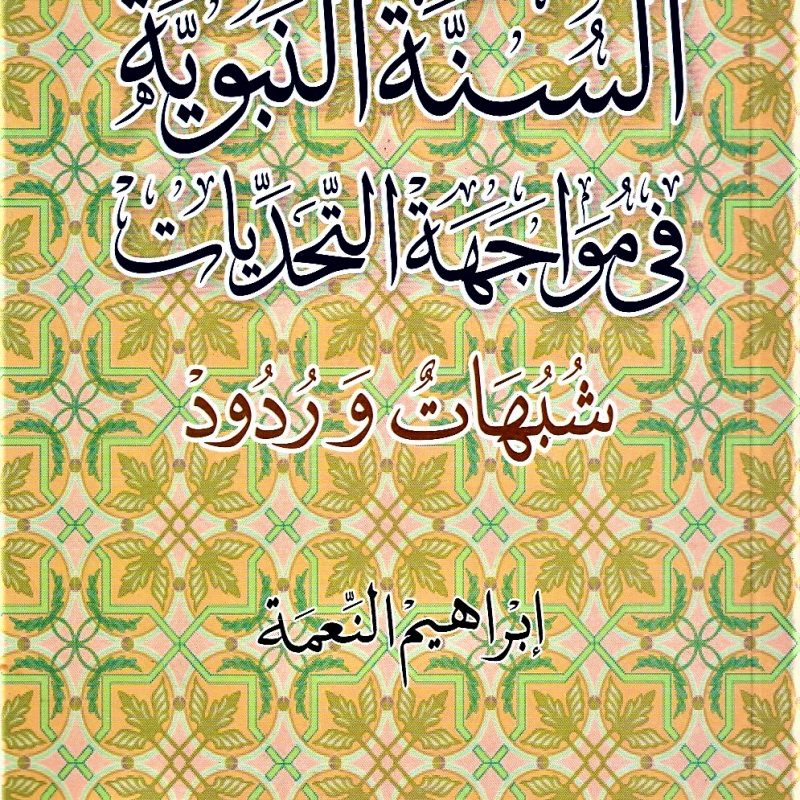 السُّنَّة النَّبويَّة
فى مُوَاجَهَة التَّحَدِّيَاتْ
شُبُهَاتٌ وَ رُدُودْ
إبْرَاهيمْ النِّعمَة